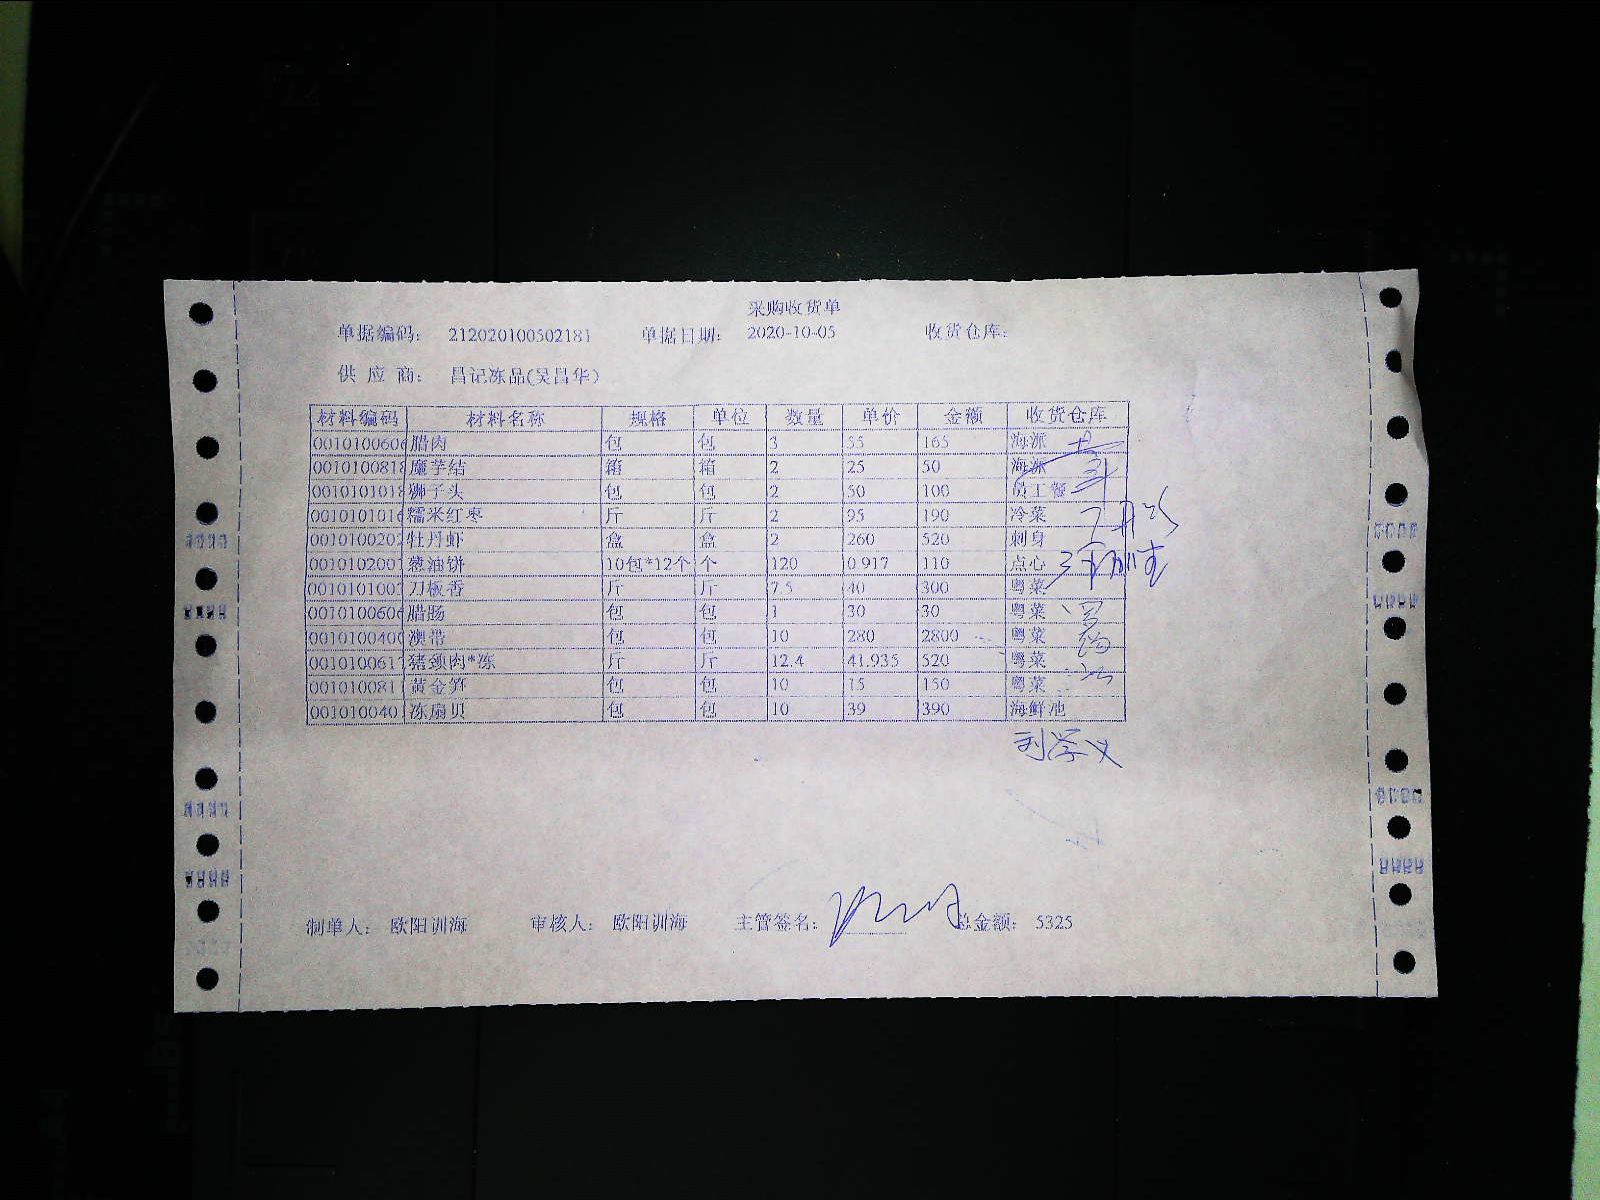 采购收货单
单据编码： 212020100502181 单据日期： 2020-10-05 收货仓库：
供 应 商： 昌记冻品(吴昌华)
材料编码 材料名称 规格 单位 数量 单价 金额 收货仓库
0010100606 腊肉 包 包 3 55 165 海派
0010100818 魔芋结 箱 箱 2 25 50 海派
0010101018 狮子头 包 包 2 50 100 员工餐
0010101016 糯米红枣 斤 斤 2 95 190 冷菜
0010100202 牡丹虾 盒 盒 2 260 520 刺身
0010102007 葱油饼 10包*12个 个 120 0.917 110 点心
0010101007 刀板香 斤 斤 7.5 40 300 粤菜
0010100606 腊肠 包 包 1 30 30 粤菜
0010100400 澳带 包 包 10 280 2800 粤菜
0010100617 猪颈肉*冻 斤 斤 12.4 41.935 520 粤菜
001010081 黄金笋 包 包 10 15 150 粤菜
001010040 冻扇贝 包 包 10 39 390 海鲜池
刘学义
制单人： 欧阳训海 审核人： 欧阳训海 主管签名： 总金额： 5325